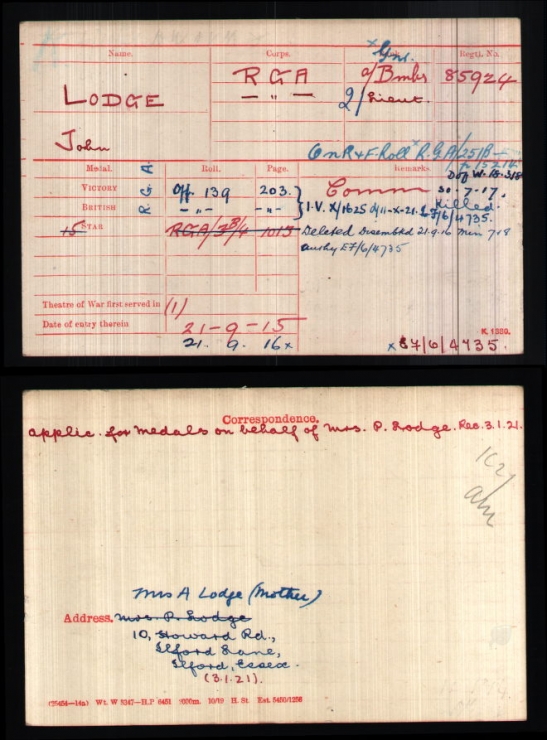 Name.
Corps.
Rank.
Regtl. No.
R G A
x Gnr.
a/Bmbr 85924
— " —
2/Lieut.
LODGE
John
On R & F Roll x R.G.A/251B —
p.15214.
Medal.
Roll.
Page.
Remarks.
R G A
VICTORY
Off 139
203.
Comm 30-7-17.
BRITISH
— " —
— " —
Killed.
I.V. X/1625 d/11-X-21. E7/6/4735.
15 STAR
RGA/3B/4 1013
Deleted Disembkd 21.9.16 Min 718
authy E7/6/4735
Theatre of War first served in (1)
Date of entry therein
21-9-15
K 1380.
21. 9. 16x
x E7/6/4735.
Correspondence.
Applic. for medals on behalf of Mrs. P. Lodge. Rec. 3.1.21.
Mrs A Lodge (Mother)
Address. Mrs. P. Lodge
10, Howard Rd.,
Ilford Lane,
Ilford, Essex.
(3.1.21).
Wt. W 5047—H.P 6451 10/19 H. St.